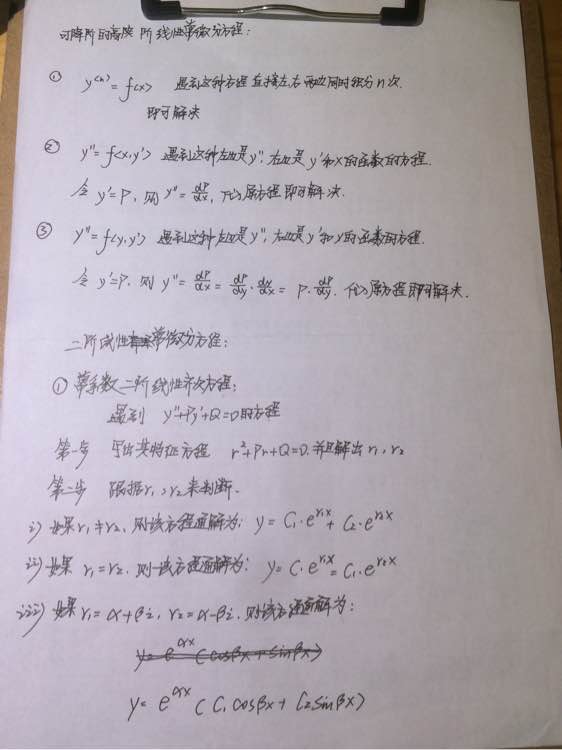 可降阶的高阶 阶线性常微分方程:
① y⁽ⁿ⁾ = f<x> 遇到这种方程 直接左、右两边同时积分n次.
即可解决
② y'' = f<x,y'> 遇到这种左边是y'', 右边是y'和x的函数的方程.
令 y'=P, 则 y''= dP/dx, 代入原方程即可解决.
③ y''=f<y,y'> 遇到这种左边是y'', 右边是y'和y的函数的方程.
令 y'=P. 则 y''= dP/dx = dP/dy · dy/dx = P · dP/dy. 代入原方程即可解决.
二阶线性常微分方程:
① 常系数二阶线性齐次方程:
遇到 y''+Py'+Q=0的方程
第一步 写出其特征方程 r²+Pr+Q=0. 并且解出 r₁, r₂
第二步 跟据r₁, r₂来判断.
i) 如果 r₁≠r₂, 则该方程通解为: y = C₁·e^{r₁x} + C₂·e^{r₂x}
ii) 如果 r₁=r₂. 则该方程通解为: y = C·e^{r₁x} = C₁·e^{r₂x}
iii) 如果 r₁=α+βi, r₂=α-βi. 则该方程通解为:
y= e^{αx} (cosβx+sinβx)
y= e^{αx} (C₁cosβx+C₂sinβx)